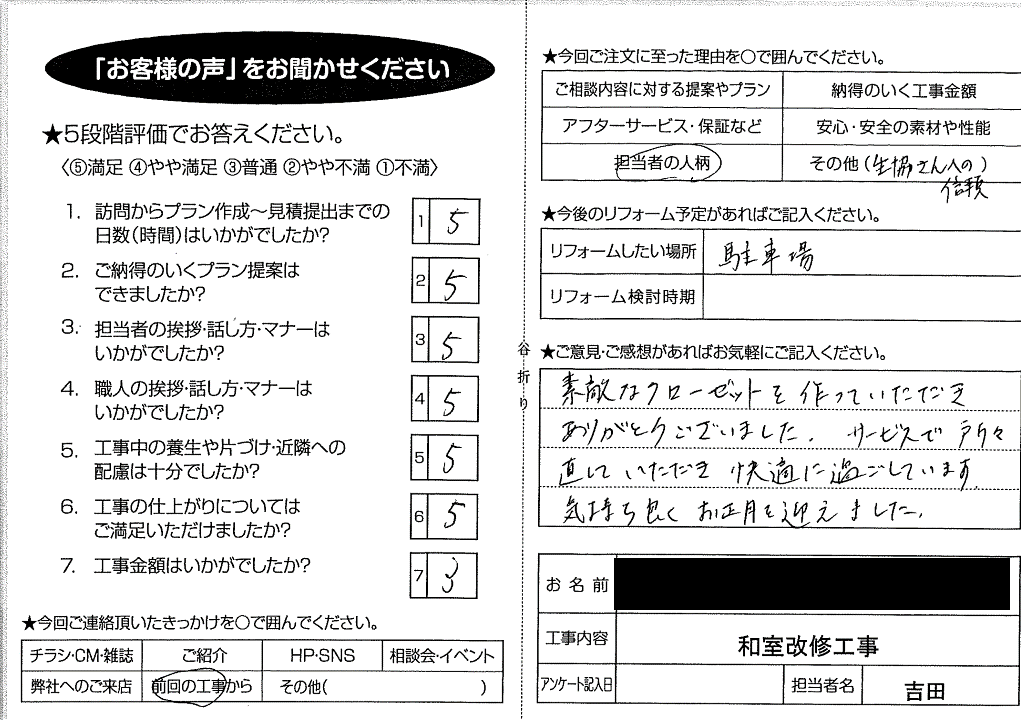 「お客様の声」をお聞かせください
★5段階評価でお答えください。
〈⑤満足 ④やや満足 ③普通 ②やや不満 ①不満〉
1. 訪問からプラン作成〜見積提出までの
日数(時間)はいかがでしたか?
1 5
2. ご納得のいくプラン提案は
できましたか?
2 5
3. 担当者の挨拶・話し方・マナーは
いかがでしたか?
3 5
4. 職人の挨拶・話し方・マナーは
いかがでしたか?
4 5
5. 工事中の養生や片づけ・近隣への
配慮は十分でしたか?
5 5
6. 工事の仕上がりについては
ご満足いただけましたか?
6 5
7. 工事金額はいかがでしたか?
7 3
★今回ご連絡頂いたきっかけを○で囲んでください。
チラシ・CM・雑誌 ご紹介 HP・SNS 相談会・イベント
弊社へのご来店 前回の工事から その他( )
谷折り
★今回ご注文に至った理由を○で囲んでください。
ご相談内容に対する提案やプラン 納得のいく工事金額
アフターサービス・保証など 安心・安全の素材や性能
担当者の人柄 その他(生協さんへの)
信頼
★今後のリフォーム予定があればご記入ください。
リフォームしたい場所 駐車場
リフォーム検討時期
★ご意見・ご感想があればお気軽にご記入ください。
素敵なクローゼットを作っていただき
ありがとうございました。サービスで戸々
直していただき快適に過ごしています。
気持ち良くお正月を迎えました。
お名前
工事内容 和室改修工事
アンケート記入日 担当者名 吉田